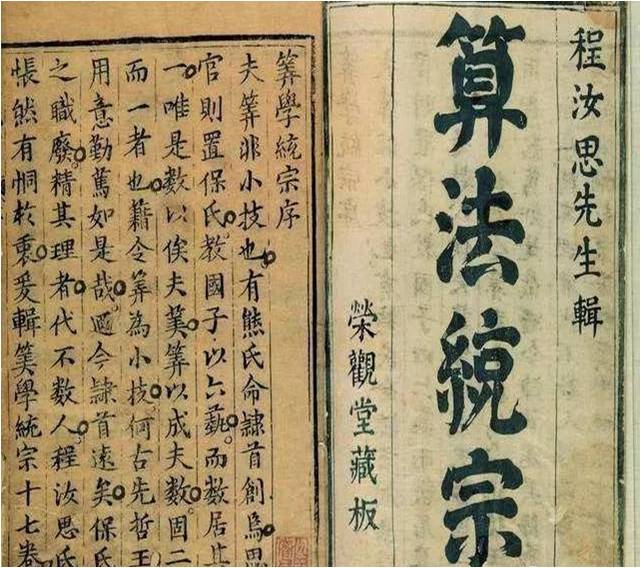 程汝思先生輯
算法統宗
榮觀堂藏板
筭學統宗序
夫筭非小技也有熊氏命隸首創焉思
官則置保氏教國子以六藝而數居其
一唯是數以俟夫筭以成夫數固二
而一者也藉令筭為小技何古先哲王
用意勤篤如是哉邇今隸首遠矣保氏
之職廢精其理者代不數人程汝思氏
悵然有恫於衷爰輯筭學統宗十七卷